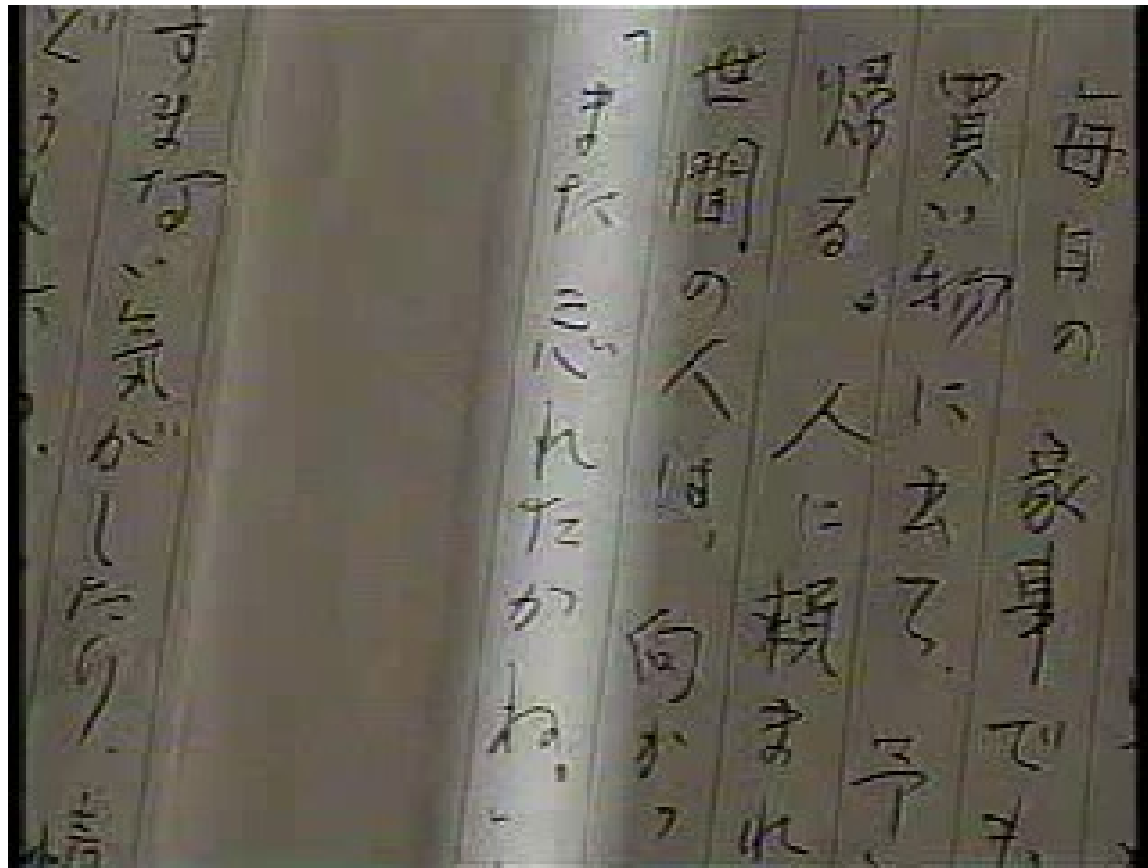 毎日の家事でも
買い物に去て、予
帰る。人に頼まれ
世間の人は、向かっ
「また忘れたかね。
すまない気がしたり、